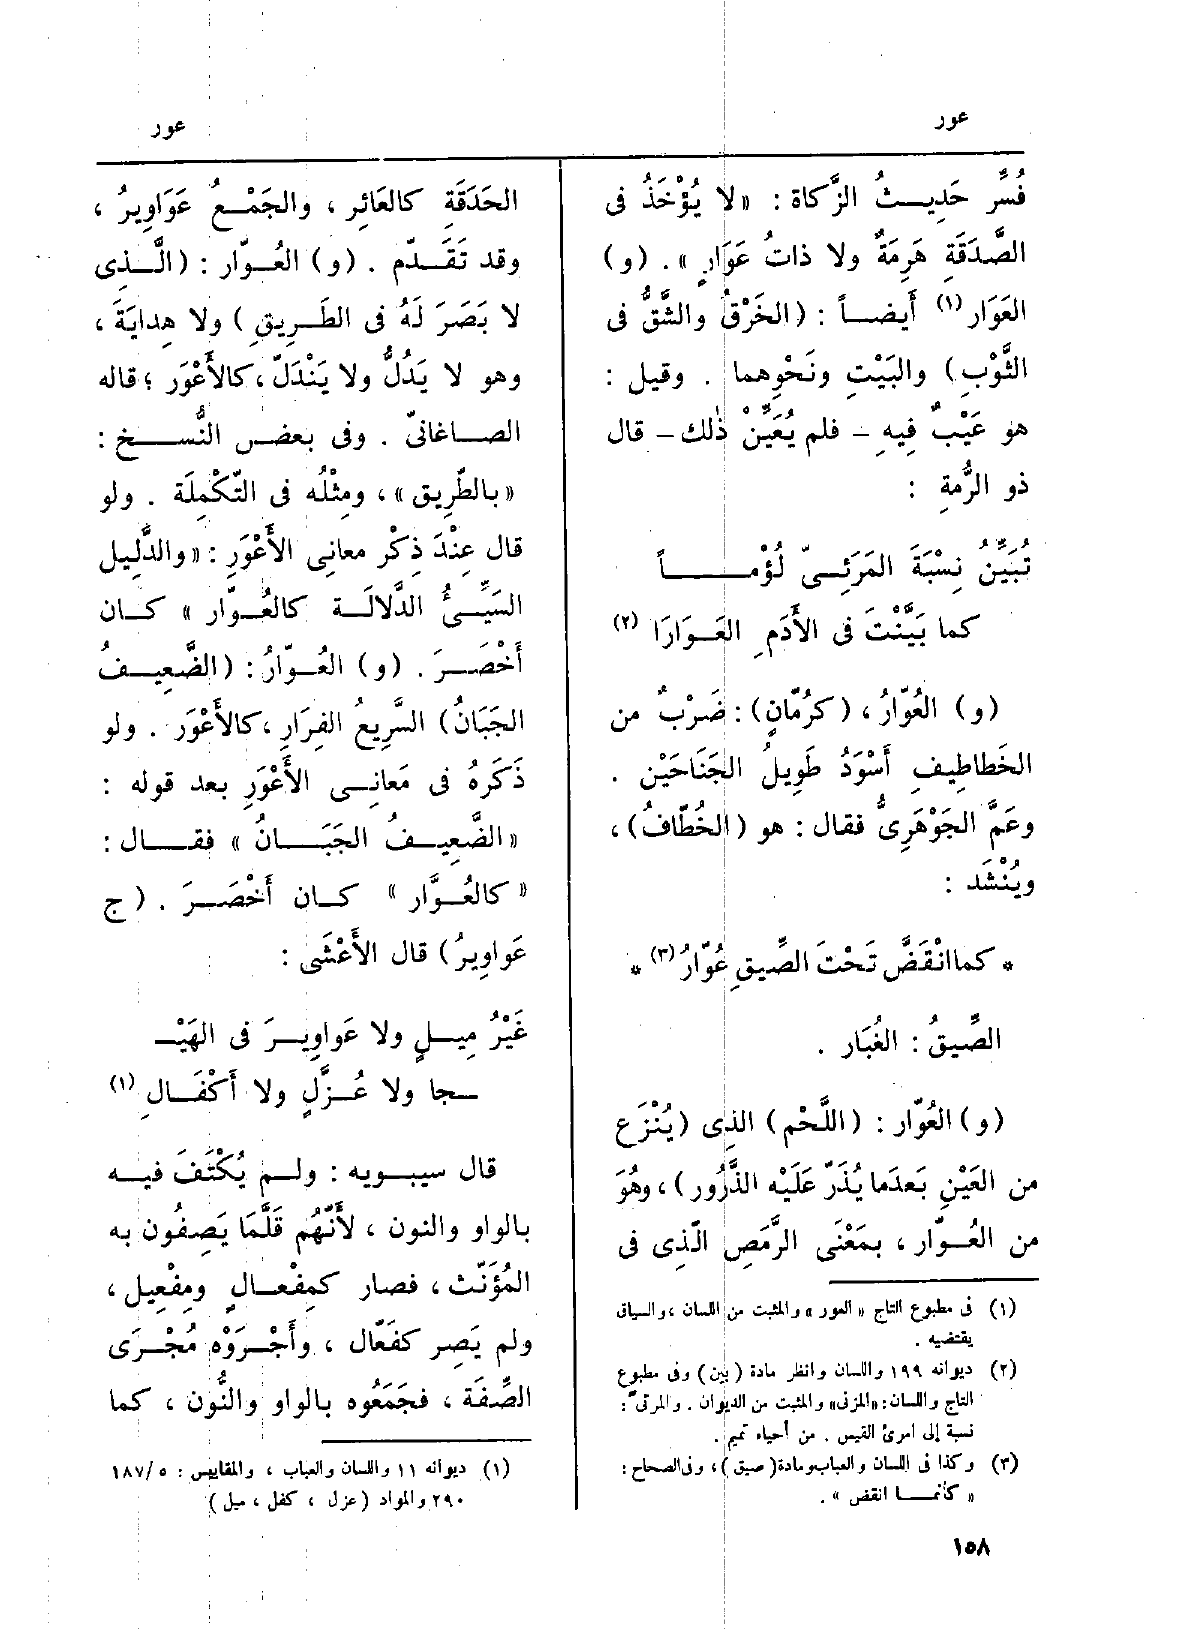 عور
عور
فُسِّرَ حَدِيثُ الزَّكاة : «لا يُؤْخَذُ فى
الصَّدَقَةِ هَرِمَةٌ ولا ذاتُ عَوَارٍ» . (و)
العَوَار (١) أَيضــاً : (الخَرْقُ والشَّقُّ فى
الثَّوْبِ) والبَيْتِ ونَحْوِهما . وقيل :
هو عَيْبٌ فِيهِ – فلم يُعَيِّنْ ذٰلك – قال
ذو الرُّمةِ :
تُبَيِّنُ نِسْبَةَ المَرَئِــىّ لُؤْمــــــاً
كما بَيَّنْتَ فى الأَدَمِ العَــوَارَا (٢)
(و) العُوّارُ ، (كرُمّانٍ) : ضَرْبٌ من
الخَطاطِيفِ أَسْوَدُ طَوِيلُ الجَنَاحَيْن .
وعَمَّ الجَوْهَرِىُّ فقال : هو (الخُطّافُ) ،
ويُنْشَد :
* كما انْقَضَّ تَحْتَ الصِّيقِ عُوّارُ (٣) *
الصِّيقُ : الغُبَار .
(و) العُوّار : (اللَّحْم) الذِى (يُنْزَع
من العَيْنِ بَعدَما يُذَرّ عَلَيْه الذَّرُور) ، وهُوَ
من العُــوّار ، بمَعْنَى الرَّمَصِ الّذِى فى
(١) فى مطبوع التاج «العور» والمثبت من اللسان ، والسياق
يقتضيه .
(٢) ديوانه ١٩٩ واللسان وانظر مادة (بين) وفى مطبوع
التاج واللسان: «المزنى» والمثبت من الديوان . والمرئىّ :
نسبة إلى امرئ القيس . من أحياء تميم .
(٣) وكذا فى اللسان والعباب ومادة (صيق) ، وفى الصحاح :
« كأنمــا انقض » .
الحَدَقَةِ كالعَائِرِ ، والجَمْـعُ عَوَاوِيرُ ،
وقد تَقَــدّم . (و) العُــوّار : (الَّــذِى
لا بَصَرَ لَهُ فى الطَّــرِيقِ) ولا هِدايَةَ ،
وهو لا يَدُلُّ ولا يَنْدَلّ ، كالأَعْوَر ؛ قاله
الصــاغانىّ . وفى بعــض النُّســـخ :
«بالطَّرِيق» ، ومِثْلُه فى التّكْمِلَة . ولو
قال عِنْدَ ذِكْر معانِى الأَعْوَرِ : «والدَّلِيل
السَّيِّـئُ الدَّلالَــة كالعُــوّار » كــان
أَخْصَــرَ . (و) العُــوّارُ : (الضَّعِيــفُ
الجَبَانُ) السَّرِيعُ الفِرَارِ ، كالأَعْوَر . ولو
ذَكَرَهُ فى مَعانِــى الأَعْوَرِ بعد قوله :
«الضَّعِيــفُ الجَبَــانُ » فقــال :
« كالعُــوَّار » كــان أَخْصَــرَ . (ج
عَواوِيرُ) قال الأَعْشَى :
غَيْرُ مِيــلٍ ولا عَواوِيــرَ فى الهَيْـ
ـجا ولا عُــزَّلٍ ولا أَكْفَــالِ (١)
قال سيبــويه : ولــم يُكْتَفَ فيــه
بالواو والنون ، لأَنَّهُم قَلَّمَا يَصِفُون به
المُؤَنَّث ، فصار كمِفْعــالٍ ومِفْعِيل ،
ولم يَصِر كفَعّال ، وأَجْــرَوْه مُجْــرَى
الصِّفَة ، فجَمَعُوه بالواو والنُّون ، كما
(١) ديوانه ١١ واللسان والعباب ، والمقاييس : ٥/١٨٧
٢٩٠ والمواد (عزل ، كفل ، ميل)
١٥٨